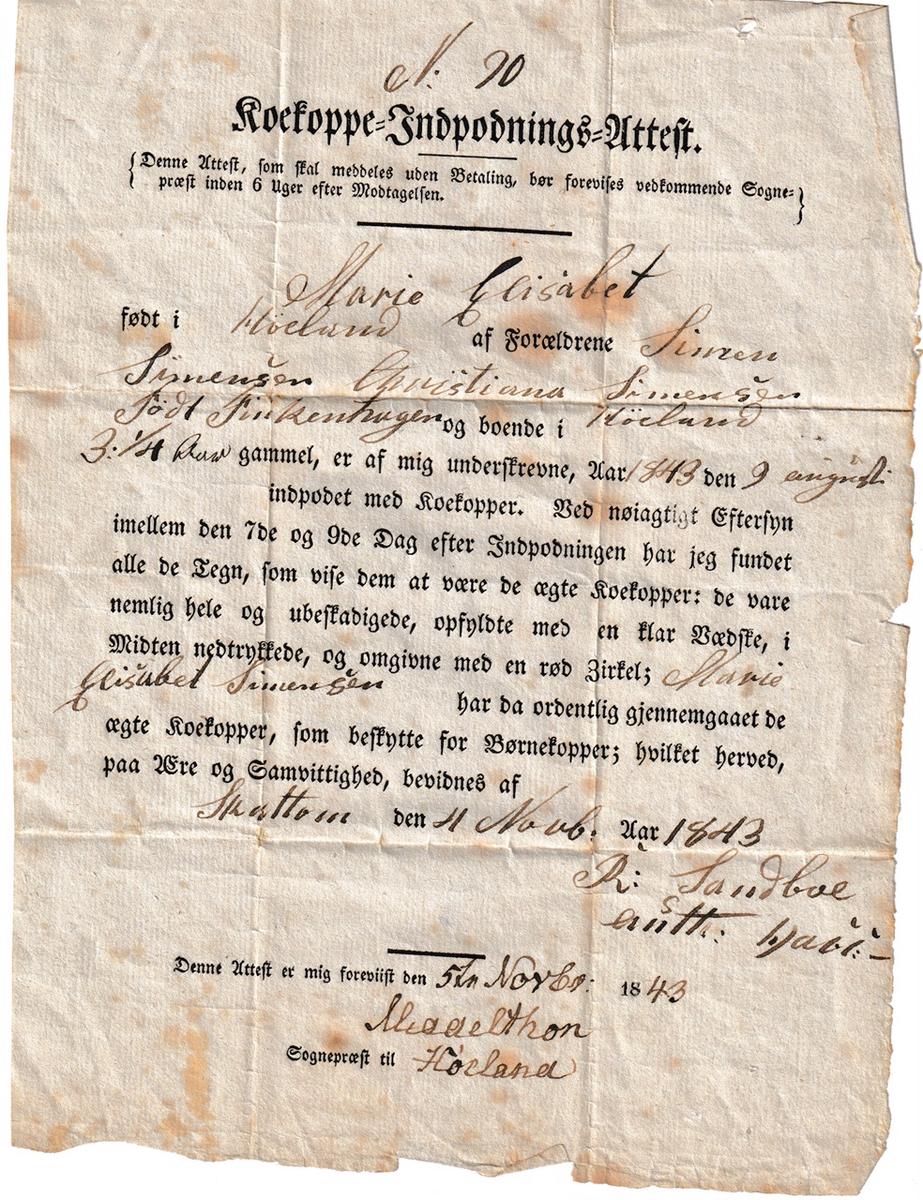 N. 20
Koekoppe-Indpodnings-Attest.
Denne Attest, som skal meddeles uden Betaling, bør forevises vedkommende Sogne-
præst inden 6 Uger efter Modtagelsen.
Marie Elisabet
født i Höeland af Forældrene Simen
Simensen Christiana Simensen
Født Finkenhagen og boende i Höeland
3:1/4 Aar gammel, er af mig underskrevne, Aar 1843 den 9 august
indpodet med Koekopper. Ved nøiagtigt Eftersyn
imellem den 7de og 9de Dag efter Indpodningen har jeg fundet
alle de Tegn, som vise dem at være de ægte Koekopper: de vare
nemlig hele og ubeskadigede, opfyldte med en klar Vædske, i
Midten nedtrykkede, og omgivne med en rød Zirkel; Marie
Elisabet Simensen
har da ordentlig gjennemgaaet de
ægte Koekopper, som beskytte for Børnekopper; hvilket herved,
paa Ære og Samvittighed, bevidnes af
den 4 Novb. Aar 1843
R: Sandboe
Denne Attest er mig foreviist den 5te Novbr: 1843
Middelthon
Sognepræst til Høeland